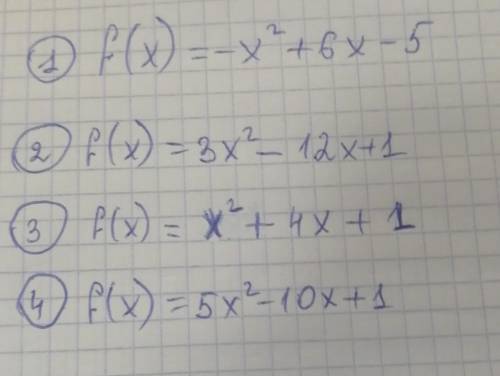 ① f(x) = -x² + 6x - 5
② f(x) = 3x² - 12x + 1
③ f(x) = x² + 4x + 1
④ f(x) = 5x² - 10x + 1